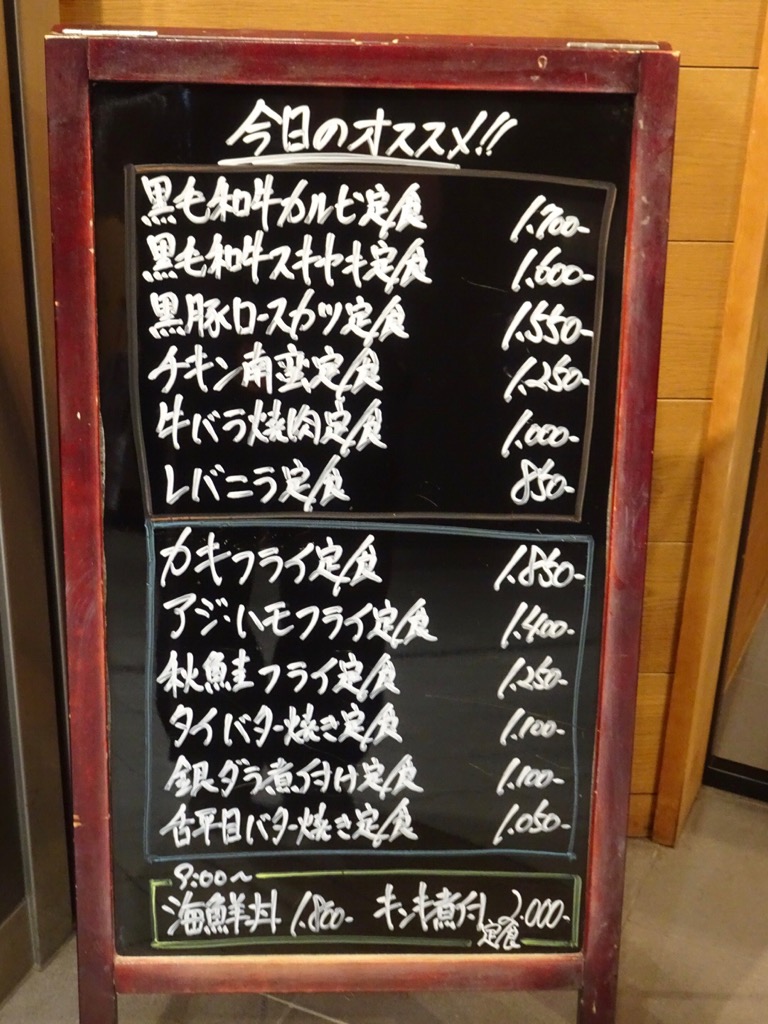 今日のオススメ!!
黒毛和牛カルビ定食 1.700-
黒毛和牛スキヤキ定食 1.600-
黒豚ロースカツ定食 1.550-
チキン南蛮定食 1.250-
牛バラ焼肉定食 1.000-
レバニラ定食 850-
カキフライ定食 1.850-
アジ・ハモフライ定食 1.400-
秋鮭フライ定食 1.250-
タイバター焼き定食 1.100-
銀ダラ煮付け定食 1.100-
舌平目バター焼き定食 1.050-
9:00〜
海鮮丼 1.800- キンキ煮付定食 2.000-